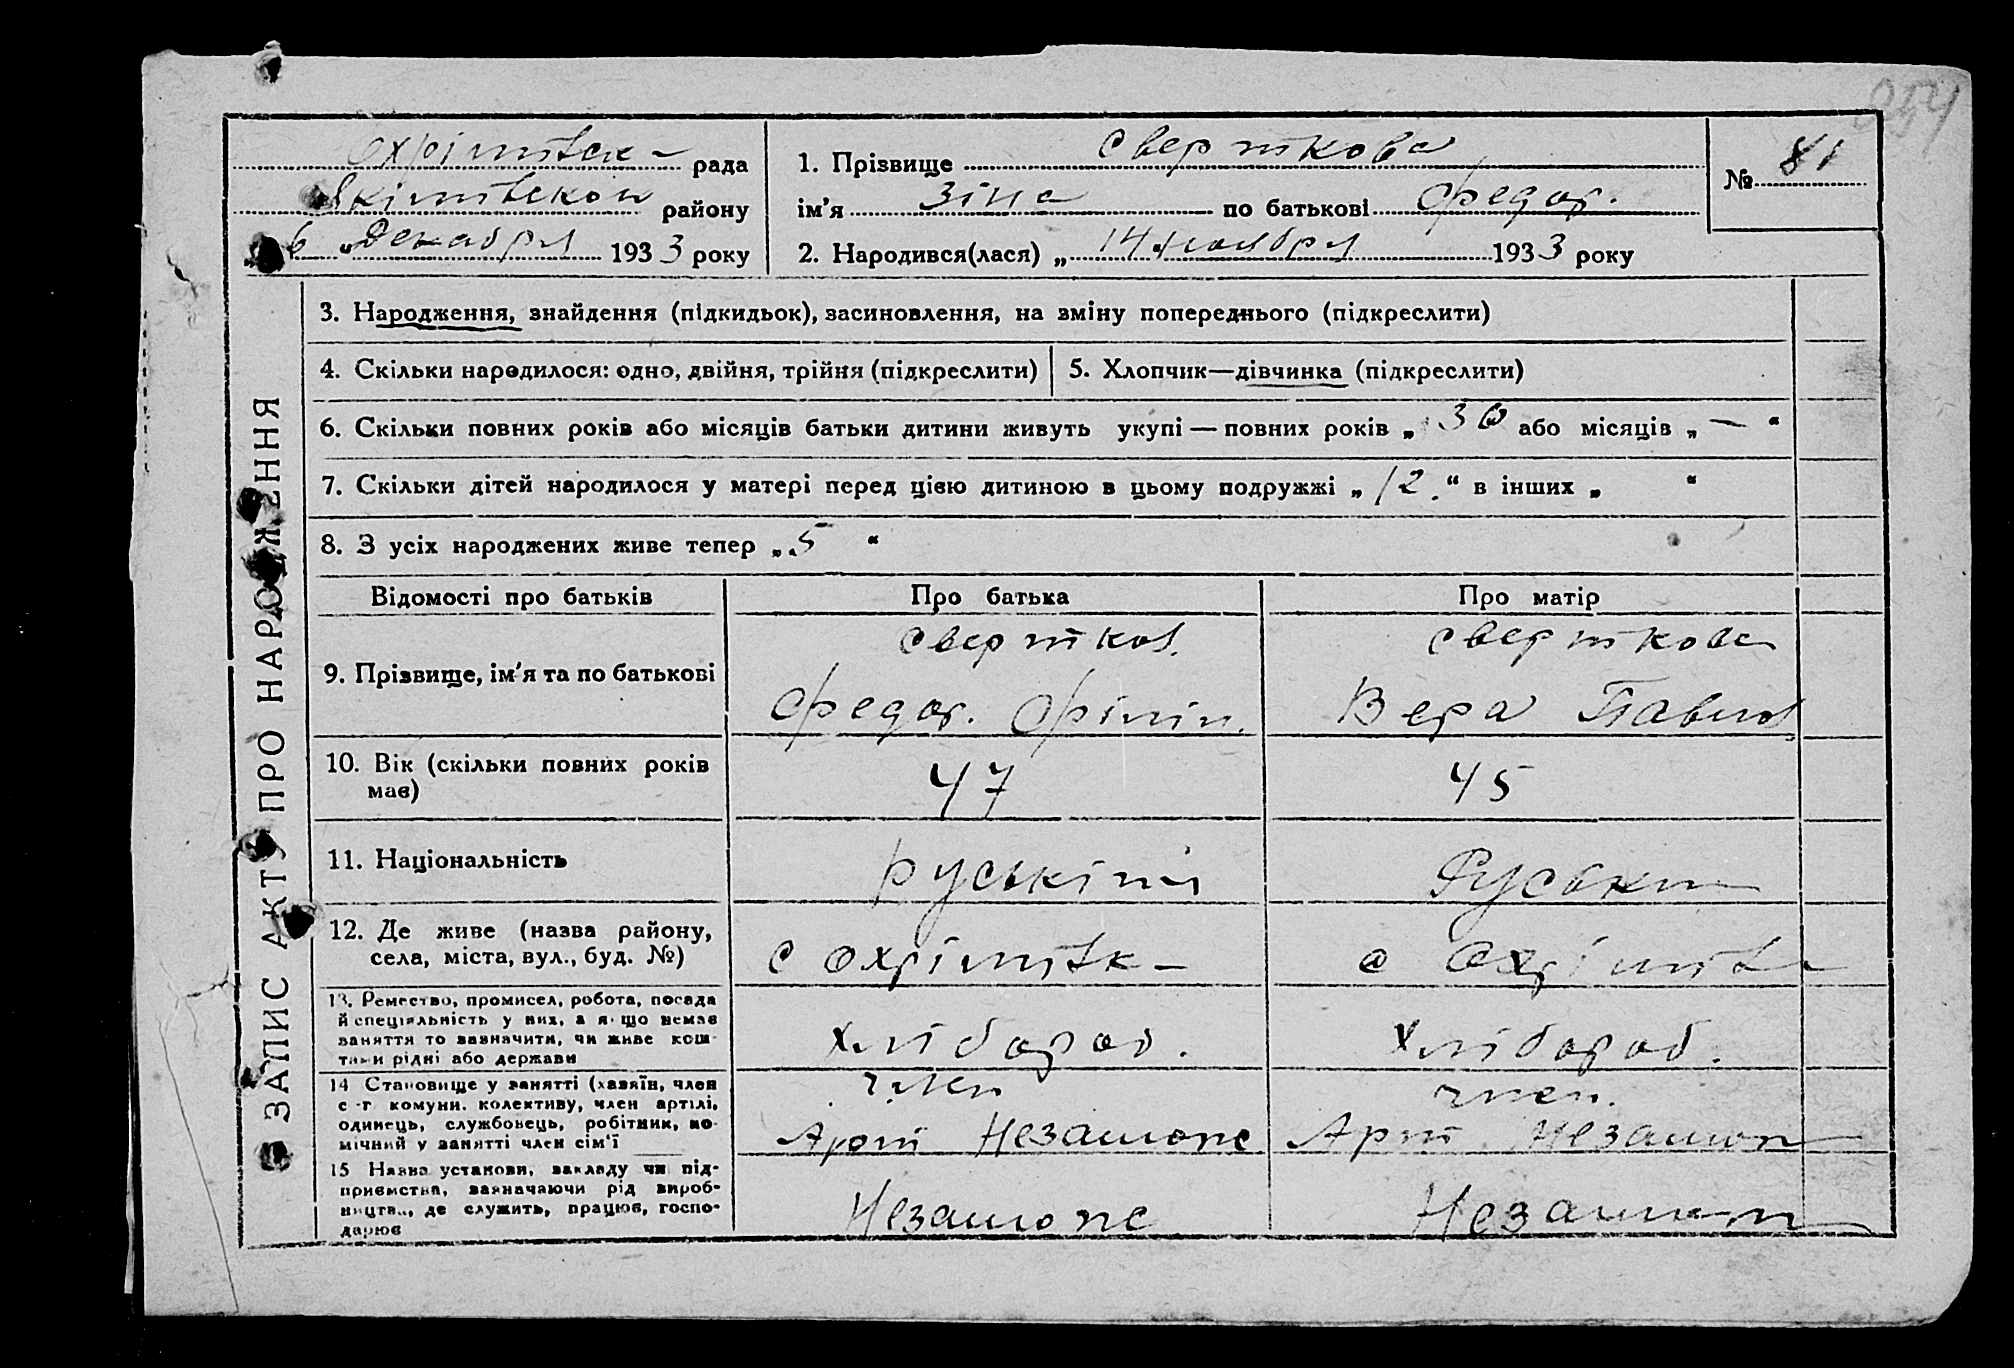 254
Охрімівск- рада
Якімівской району
6 „Декабря 1933 року
1. Прізвище Сверткова
ім'я Зіна по батькові Федор.
2. Народився(лася) „14 ноября 1933 року
№ 81
ЗАПИС АКТУ ПРО НАРОДЖЕННЯ
3. Народження, знайдення (підкидьок), засиновлення, на зміну попереднього (підкреслити)
4. Скільки народилося: одно, двійня, трійня (підкреслити)
5. Хлопчик—дівчинка (підкреслити)
6. Скільки повних років або місяців батьки дитини живуть укупі — повних років „ 30 або місяців „ — “
7. Скільки дітей народилося у матері перед цією дитиною в цьому подружжі „ 12. “ в інших „ “
8. З усіх народжених живе тепер „ 5 “
Відомості про батьків Про батька Про матір
9. Прізвище, ім'я та по батькові
Сверtков. Сверткова
Федор. Філіп. Вера Павлов
10. Вік (скільки повних років має)
47 45
11. Національність
руський Руськи
12. Де живе (назва району,
села, міста, вул., буд. №)
с Охрімівк- с Охрімів
13. Ремество, промисел, робота, посада
й спеціяльність у них, а якщо немає
заняття то зазначити, чи живе кош-
тами рідні або держави
Хлібороб. Хлібороб.
14 Становище у занятті (хазяїн, член
с.-г. комуни, колективу, член артілі,
одинець, службовець, робітник, по-
мічний у занятті член сім'ї
член член.
Арт Незаможе Арт Незамож
15 Назва установи, закладу чи під-
приємства, зазначаючи рід вироб-
ництва, де служить, працює, госпо-
дарює
Незаможе Незамож